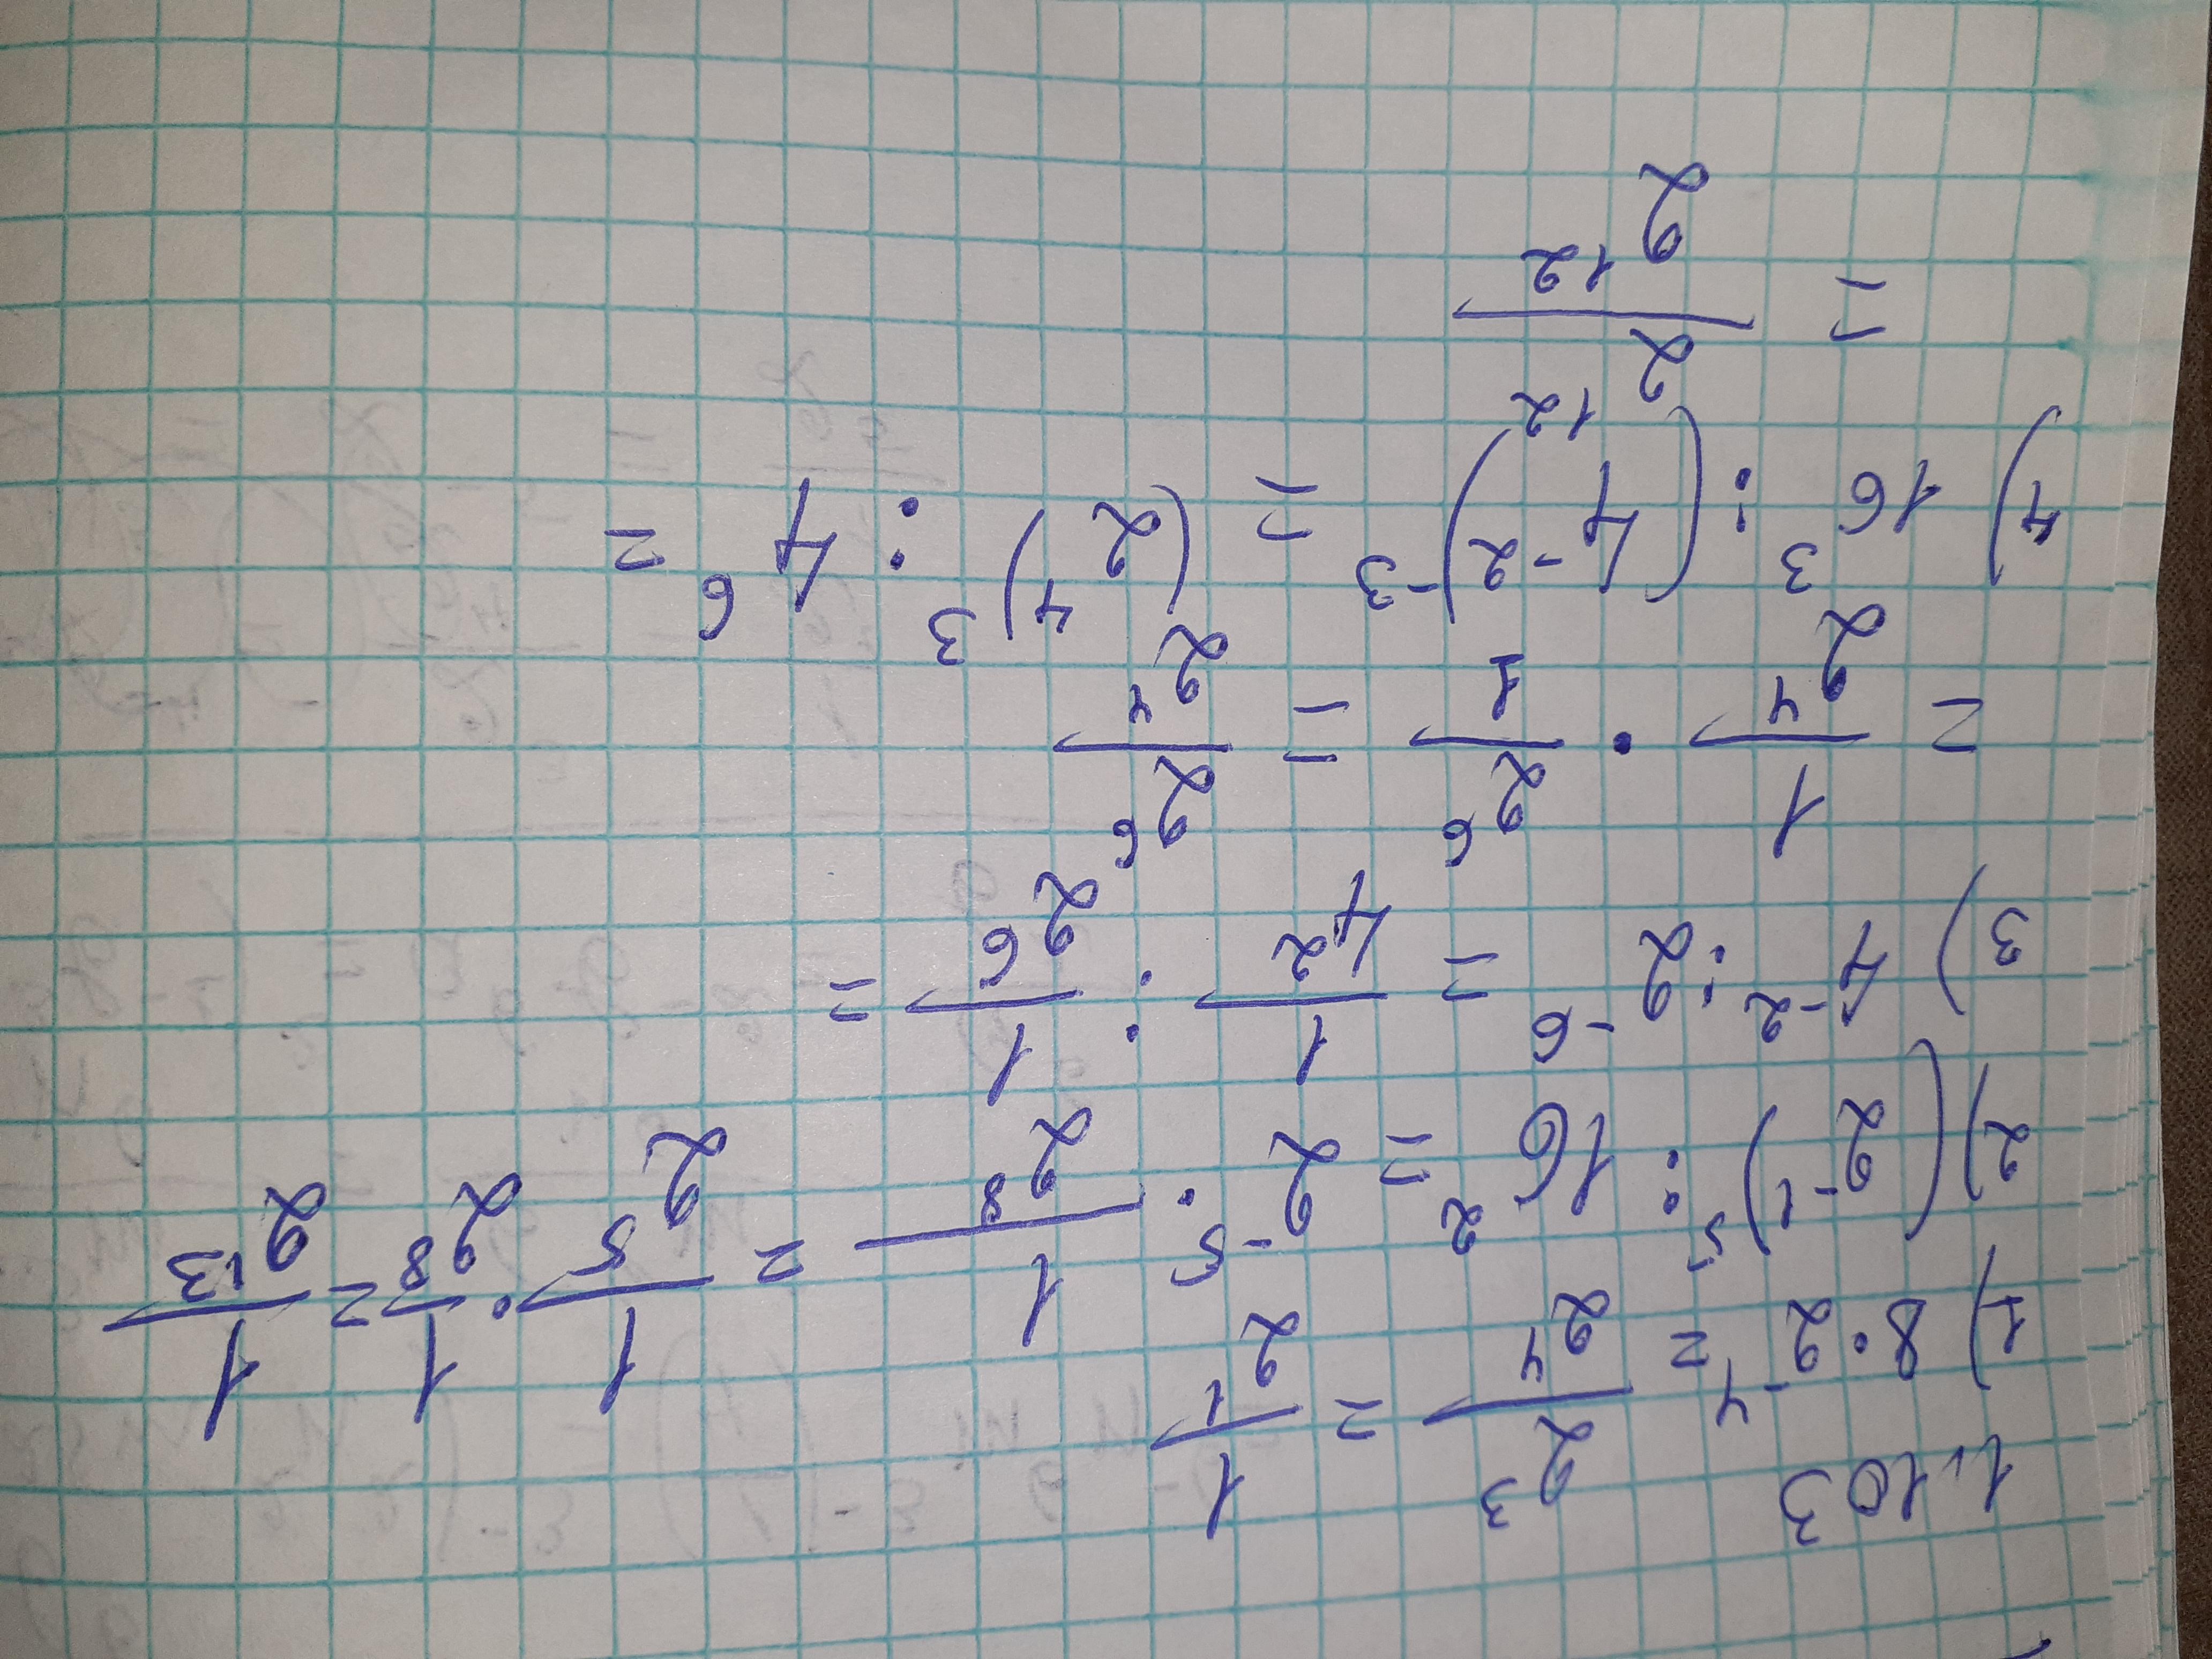 1.103
1) 8·2⁻⁴ = 2³/2⁴ = 1/2¹
2) (2⁻¹)⁵ : 16² = 2⁻⁵ · 1/2⁸ = 1/2⁵ · 1/2⁸ = 1/2¹³
3) 4⁻² : 2⁻⁶ = 1/4² : 1/2⁶ =
= 1/2⁴ · 2⁶/1 = 2⁶/2⁴
4) 16³ : (4⁻²)⁻³ = (2⁴)³ : 4⁶ =
= 2¹²/2¹²